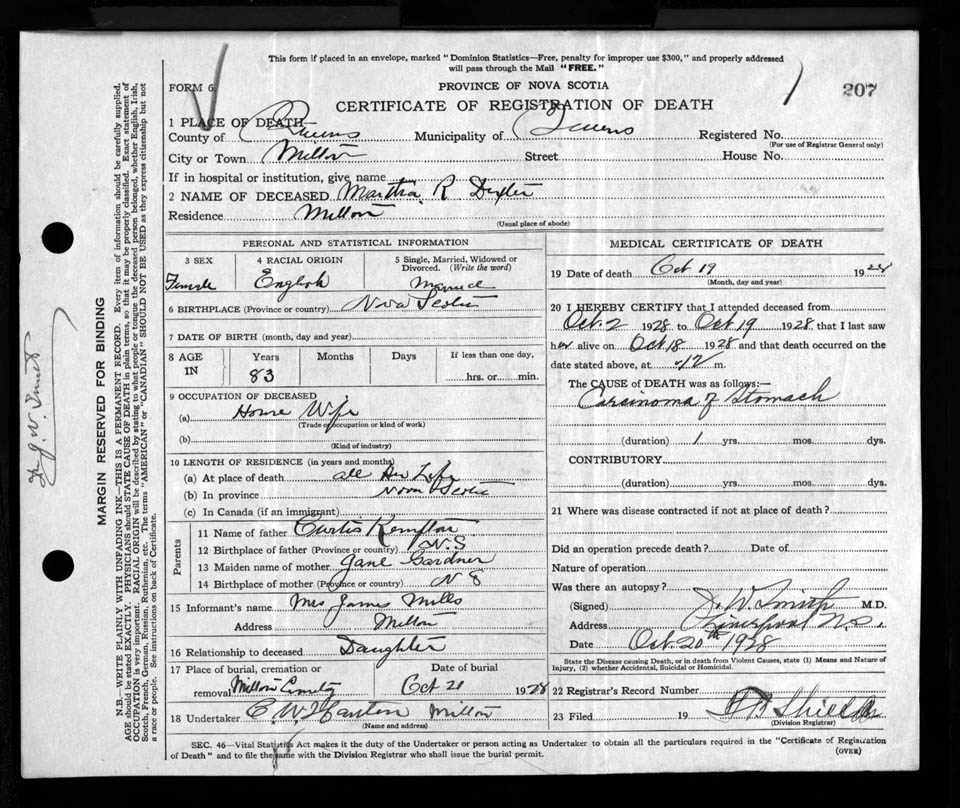 This form if placed in an envelope, marked "Dominion Statistics—Free, penalty for improper use $300," and properly addressed
will pass through the Mail "FREE."
FORM 6
PROVINCE OF NOVA SCOTIA
207
CERTIFICATE OF REGISTRATION OF DEATH
1 PLACE OF DEATH—
County of Queens Municipality of Queens Registered No.
(For use of Registrar General only)
City or Town Milton Street House No.
If in hospital or institution, give name
2 NAME OF DECEASED Martha R Dexter
Residence Milton
(Usual place of abode)
PERSONAL AND STATISTICAL INFORMATION
3 SEX 4 RACIAL ORIGIN 5 Single, Married, Widowed or
Divorced. (Write the word)
Female English Married
6 BIRTHPLACE (Province or country) Nova Scotia
7 DATE OF BIRTH (month, day and year)
8 AGE IN Years Months Days If less than one day,
83 hrs. or min.
9 OCCUPATION OF DECEASED
(a) House Wife
(Trade occupation or kind of work)
(b)
(Kind of industry)
10 LENGTH OF RESIDENCE (in years and months)
(a) At place of death all Her Life
(b) In province Nova Scotia
(c) In Canada (if an immigrant)
Parents
11 Name of father Curtis Kempton
12 Birthplace of father (Province or country) N.S
13 Maiden name of mother Jane Gardner
14 Birthplace of mother (Province or country) N S
15 Informant's name Mrs James Mills
Address Milton
16 Relationship to deceased Daughter
17 Place of burial, cremation or Date of burial
removal Milton Cemetery Oct 21 1928
18 Undertaker Milton
(Name and address)
MEDICAL CERTIFICATE OF DEATH
19 Date of death Oct 19 1928
(Month, day and year)
20 I HEREBY CERTIFY that I attended deceased from
Oct. 2 1928 to Oct 19 1928 that I last saw
her alive on Oct 18 1928 and that death occurred on the
date stated above, at 12 m.
The CAUSE OF DEATH was as follows:—
Carsinoma of Stomach
(duration) 1 yrs. mos. dys.
CONTRIBUTORY
(duration) yrs. mos. dys.
21 Where was disease contracted if not at place of death?
Did an operation precede death? Date of
Nature of operation
Was there an autopsy?
(Signed) J. W. Smith M.D.
Address Liverpool N.S.
Date Oct. 20th 1928
State the Disease causing Death, or in death from Violent Causes, state (1) Means and Nature of
Injury, (2) whether Accidental, Suicidal or Homicidal.
22 Registrar's Record Number
23 Filed 19 Shields
(Division Registrar)
SEC. 46—Vital Statistics Act makes it the duty of the Undertaker or person acting as Undertaker to obtain all the particulars required in the "Certificate of Registration
of Death" and to file the same with the Division Registrar who shall issue the burial permit. (OVER)
MARGIN RESERVED FOR BINDING
N.B.—WRITE PLAINLY WITH UNFADING INK—THIS IS A PERMANENT RECORD. Every item of information should be carefully supplied.
AGE should be stated EXACTLY. PHYSICIANS should STATE CAUSE OF DEATH in plain terms, so that it may be properly classified. Exact statement of
OCCUPATION is very important. RACIAL ORIGIN will be described by stating to what people or tongue the deceased person belonged, whether English, Irish,
Scotch, French, German, Russian, Ruthenian, etc. The terms "AMERICAN" or "CANADIAN" SHOULD NOT BE USED as they express citizenship but not
a race or people. See instructions on back of Certificate.